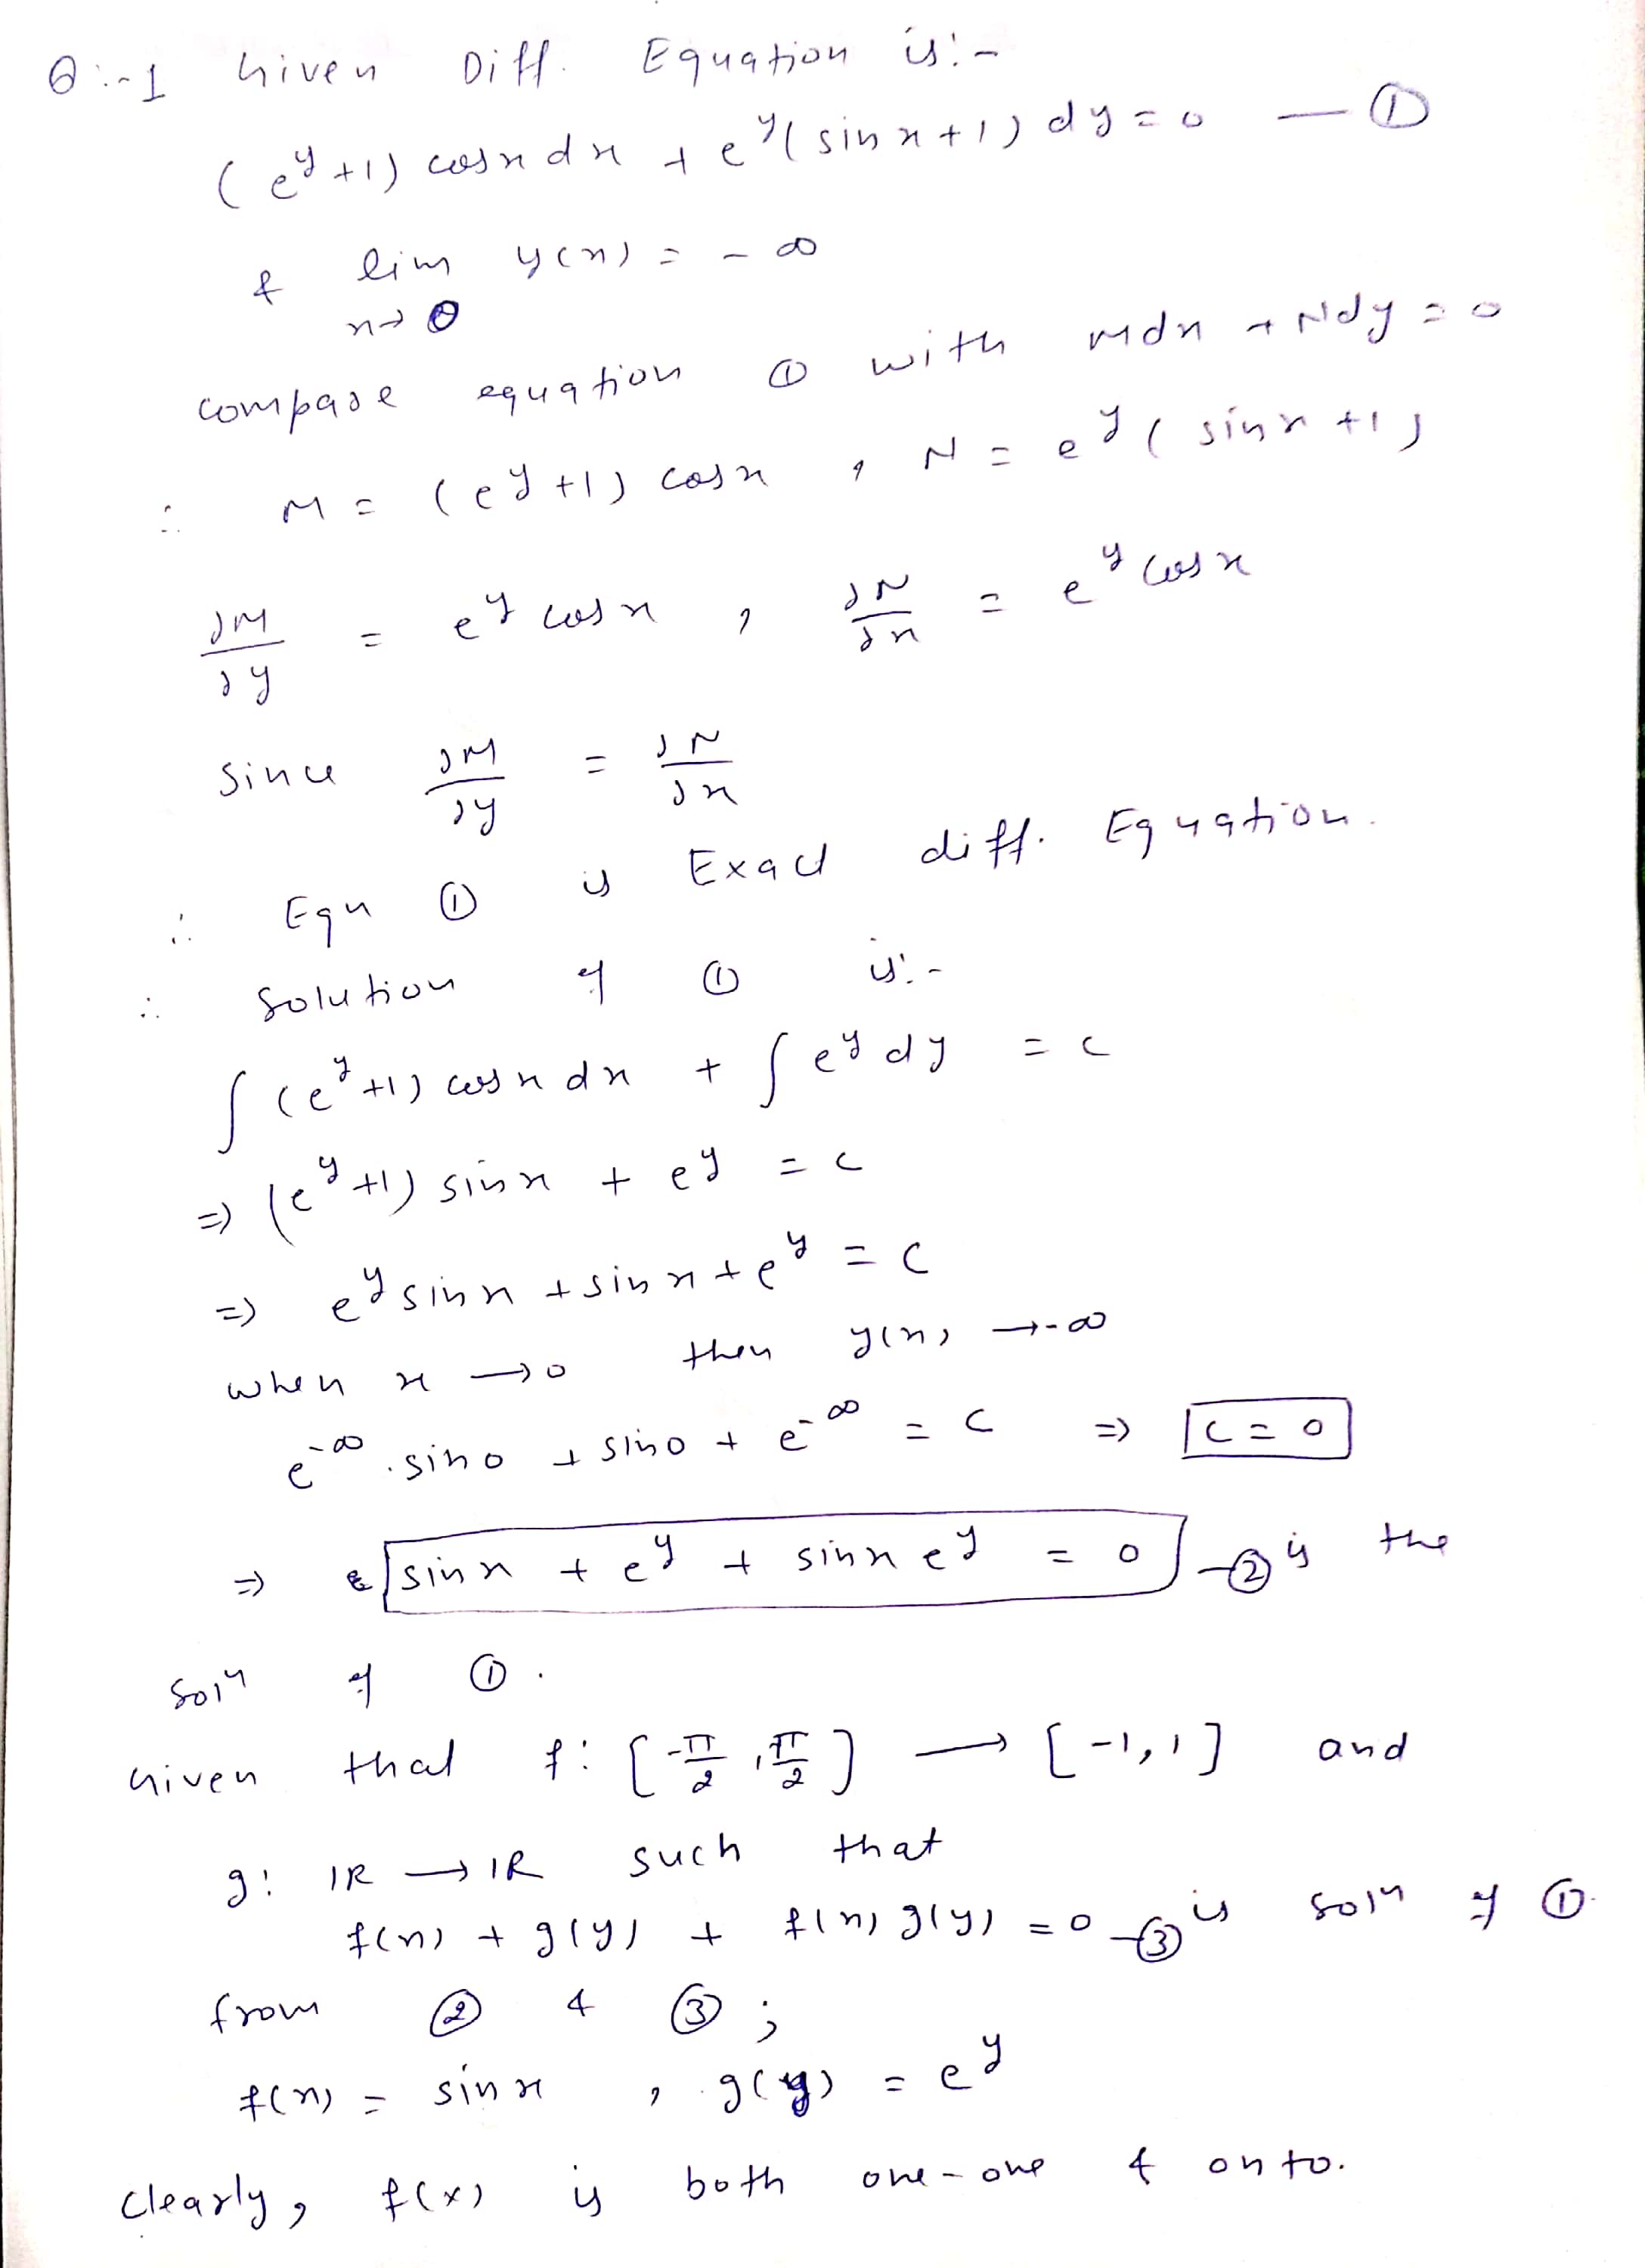 Q:-1 Given Diff. Equation is:-
(e^y +1) cosx dx + e^y (sin x +1) dy = 0 — ①
& lim y(x) = - ∞
x→0
compare equation ① with Mdx + Ndy = 0
∴ M = (e^y +1) cosx , N = e^y (sinx +1)
∂M/∂y = e^y cosx , ∂N/∂x = e^y cosx
Since ∂M/∂y = ∂N/∂x
∴ Equ ① is Exact diff. Equation.
∴ Solution of ① is:-
∫ (e^y +1) cosx dx + ∫ e^y dy = c
⇒ (e^y +1) sinx + e^y = c
⇒ e^y sinx + sinx + e^y = c
when x → 0 then y(x) → -∞
e^-∞ . sin0 + sin0 + e^-∞ = c ⇒ c = 0
⇒ sinx + e^y + sinx e^y = 0 — ② is the
Soln of ① .
Given that f: [-π/2 , π/2] → [-1, 1] and
g: IR → IR such that
f(x) + g(y) + f(x) g(y) = 0 — ③ is Soln of ①.
from ② & ③ ;
f(x) = sinx , g(y) = e^y
Clearly, f(x) is both one-one & onto.